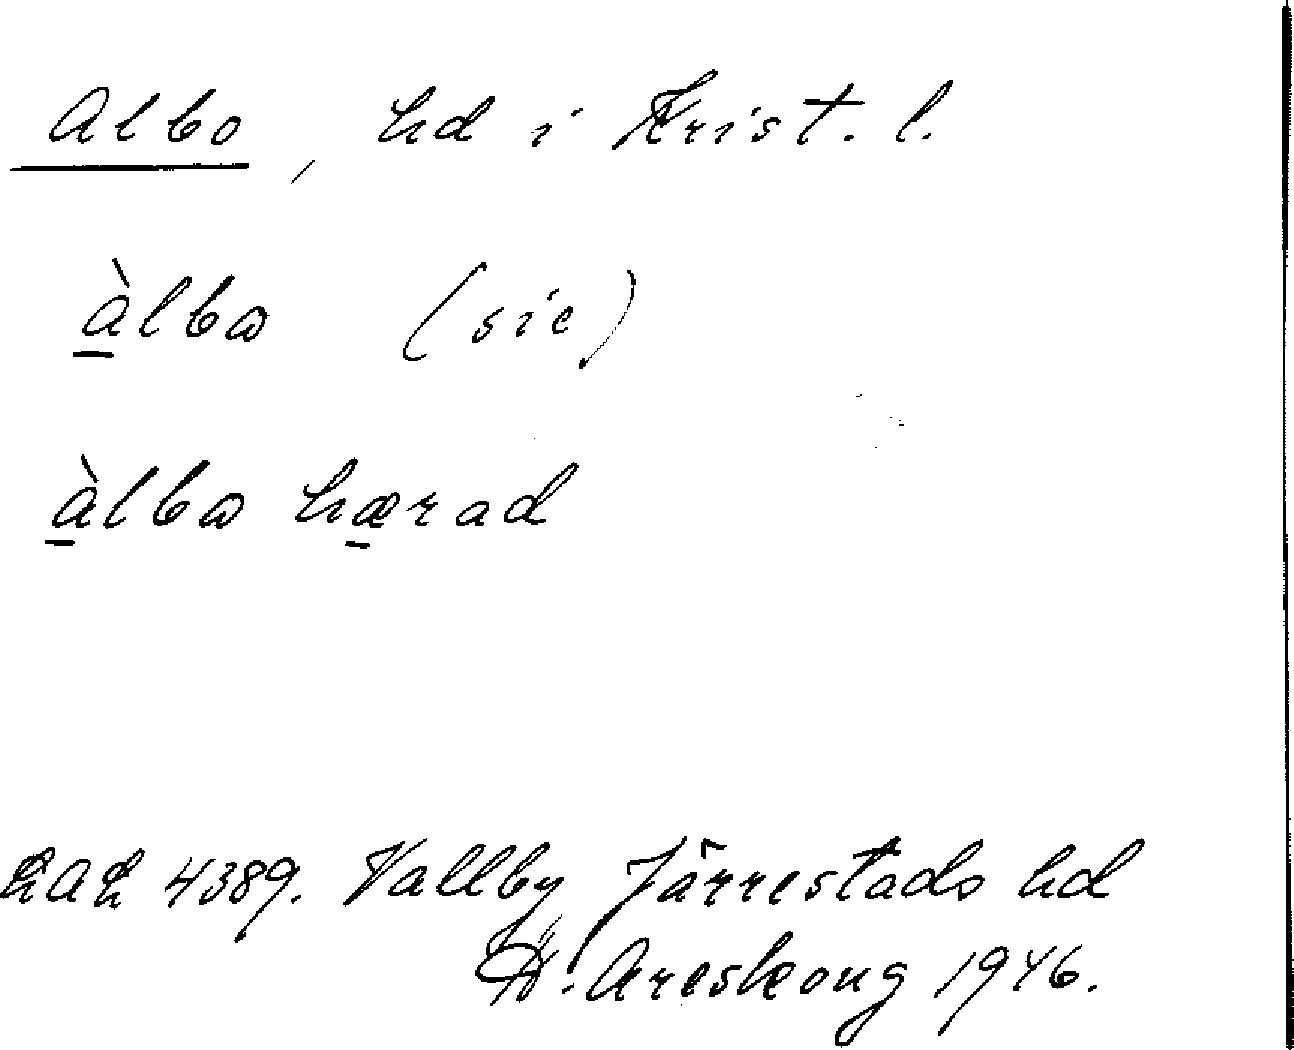 Albo, hd i Krist. l.
àlbω (sic)
àlbω hærad
LAL 4389. Vallby Järrestads hd
H. Areskoug 1946.